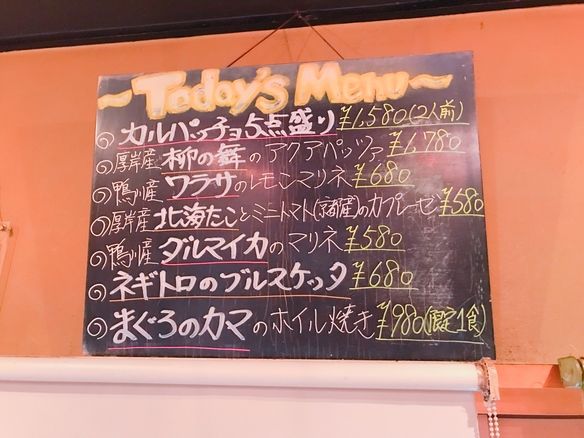 ~Today's Menu~
カルパッチョ5点盛り ¥1,580(2人前)
厚岸産 柳の舞のアクアパッツァ ¥1,780
鴨川産 ワラサのレモンマリネ ¥680
厚岸産 北海たことミニトマト(京都産)のカプレーゼ ¥580
鴨川産 ダルマイカのマリネ ¥580
ネギトロのブルスケッタ ¥680
まぐろのカマのホイル焼き ¥980(限定1食)